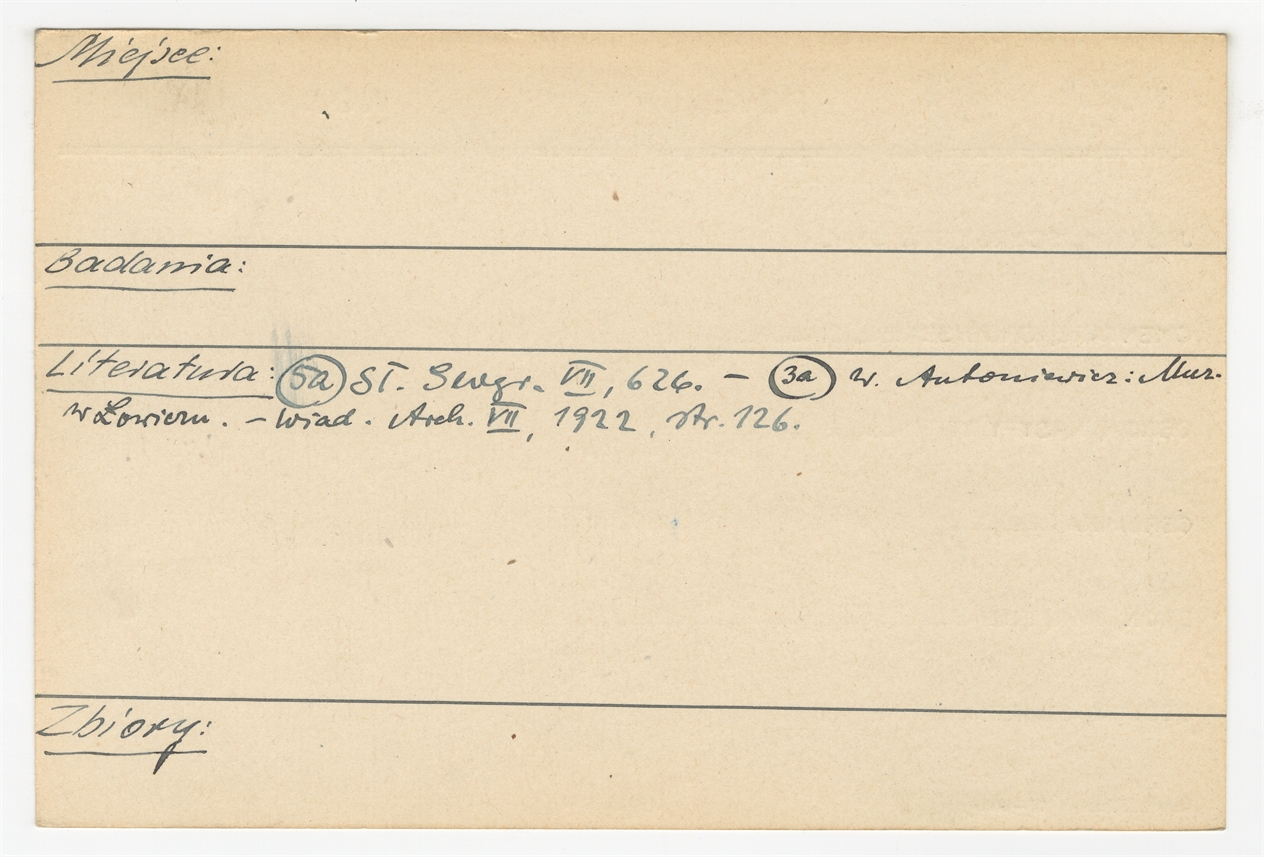 Miejsce:
Badania:
Literatura: (5a) Sł. Geogr. VII, 626. – (3a) W. Antoniewicz: Muz.
w Łowiczu. – Wiad. Arch. VII, 1922, str. 126.
Zbiory: